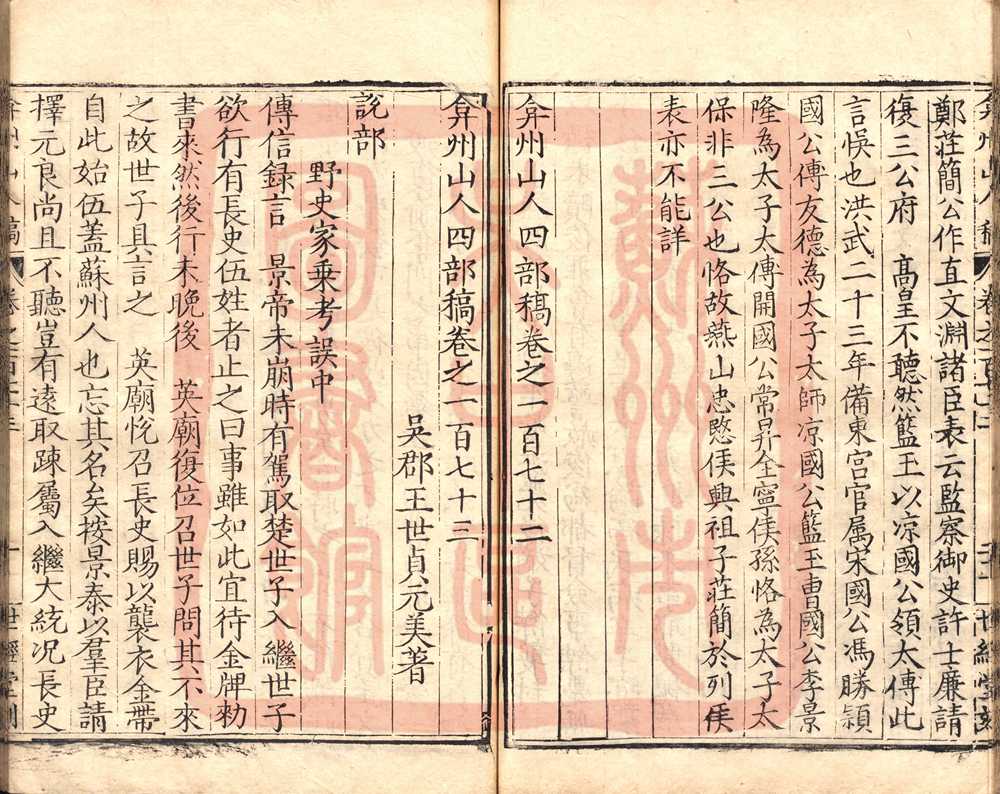 鄭莊簡公作直文淵諸臣表云監察御史許士廉請
復三公府　高皇不聽然籃王以凉國公領太傅此
言悞也洪武二十三年備東宮官属宋國公馮勝頴
國公傅友德為太子太師凉國公籃玉曹國公李景
隆為太子太傅開國公常昇全寧侯孫恪為太子太
保非三公也恪故燕山忠愍侯興祖子莊簡於列侯
表亦不能詳
弇州山人四部稿卷之一百七十二
弇州山人四部稿卷之一百七十三
吳郡王世貞元美著
說部
野史家乗考誤中
傳信録言　景帝未崩時有駕取楚世子入繼世子
欲行有長史伍姓者止之曰事雖如此宜待金牌勑
書來然後行未晚後　英廟復位召世子問其不來
之故世子具言之　英廟恱召長史賜以襲衣金帶
自此始伍蓋蘇州人也忘其名矣按景泰以羣臣請
擇元良尚且不聽豈有遠取踈屬入繼大統况長史
蘇州市
圖書館